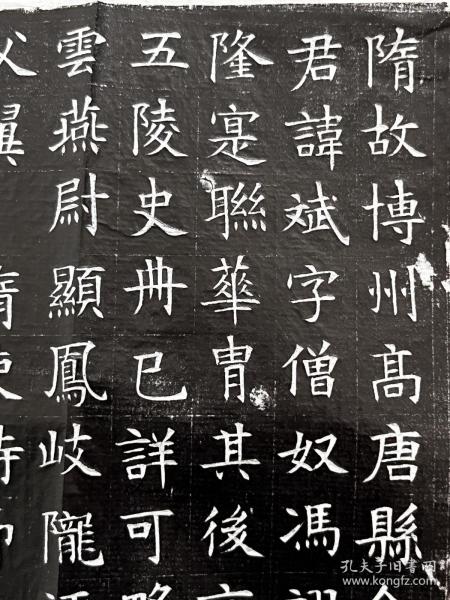 隋故博州高唐縣
君諱斌字僧奴馮
隆寔聯華胄其後
五陵史冊已詳可
雲燕尉顯鳳岐隴
孔夫子旧书网
www.kongfz.com